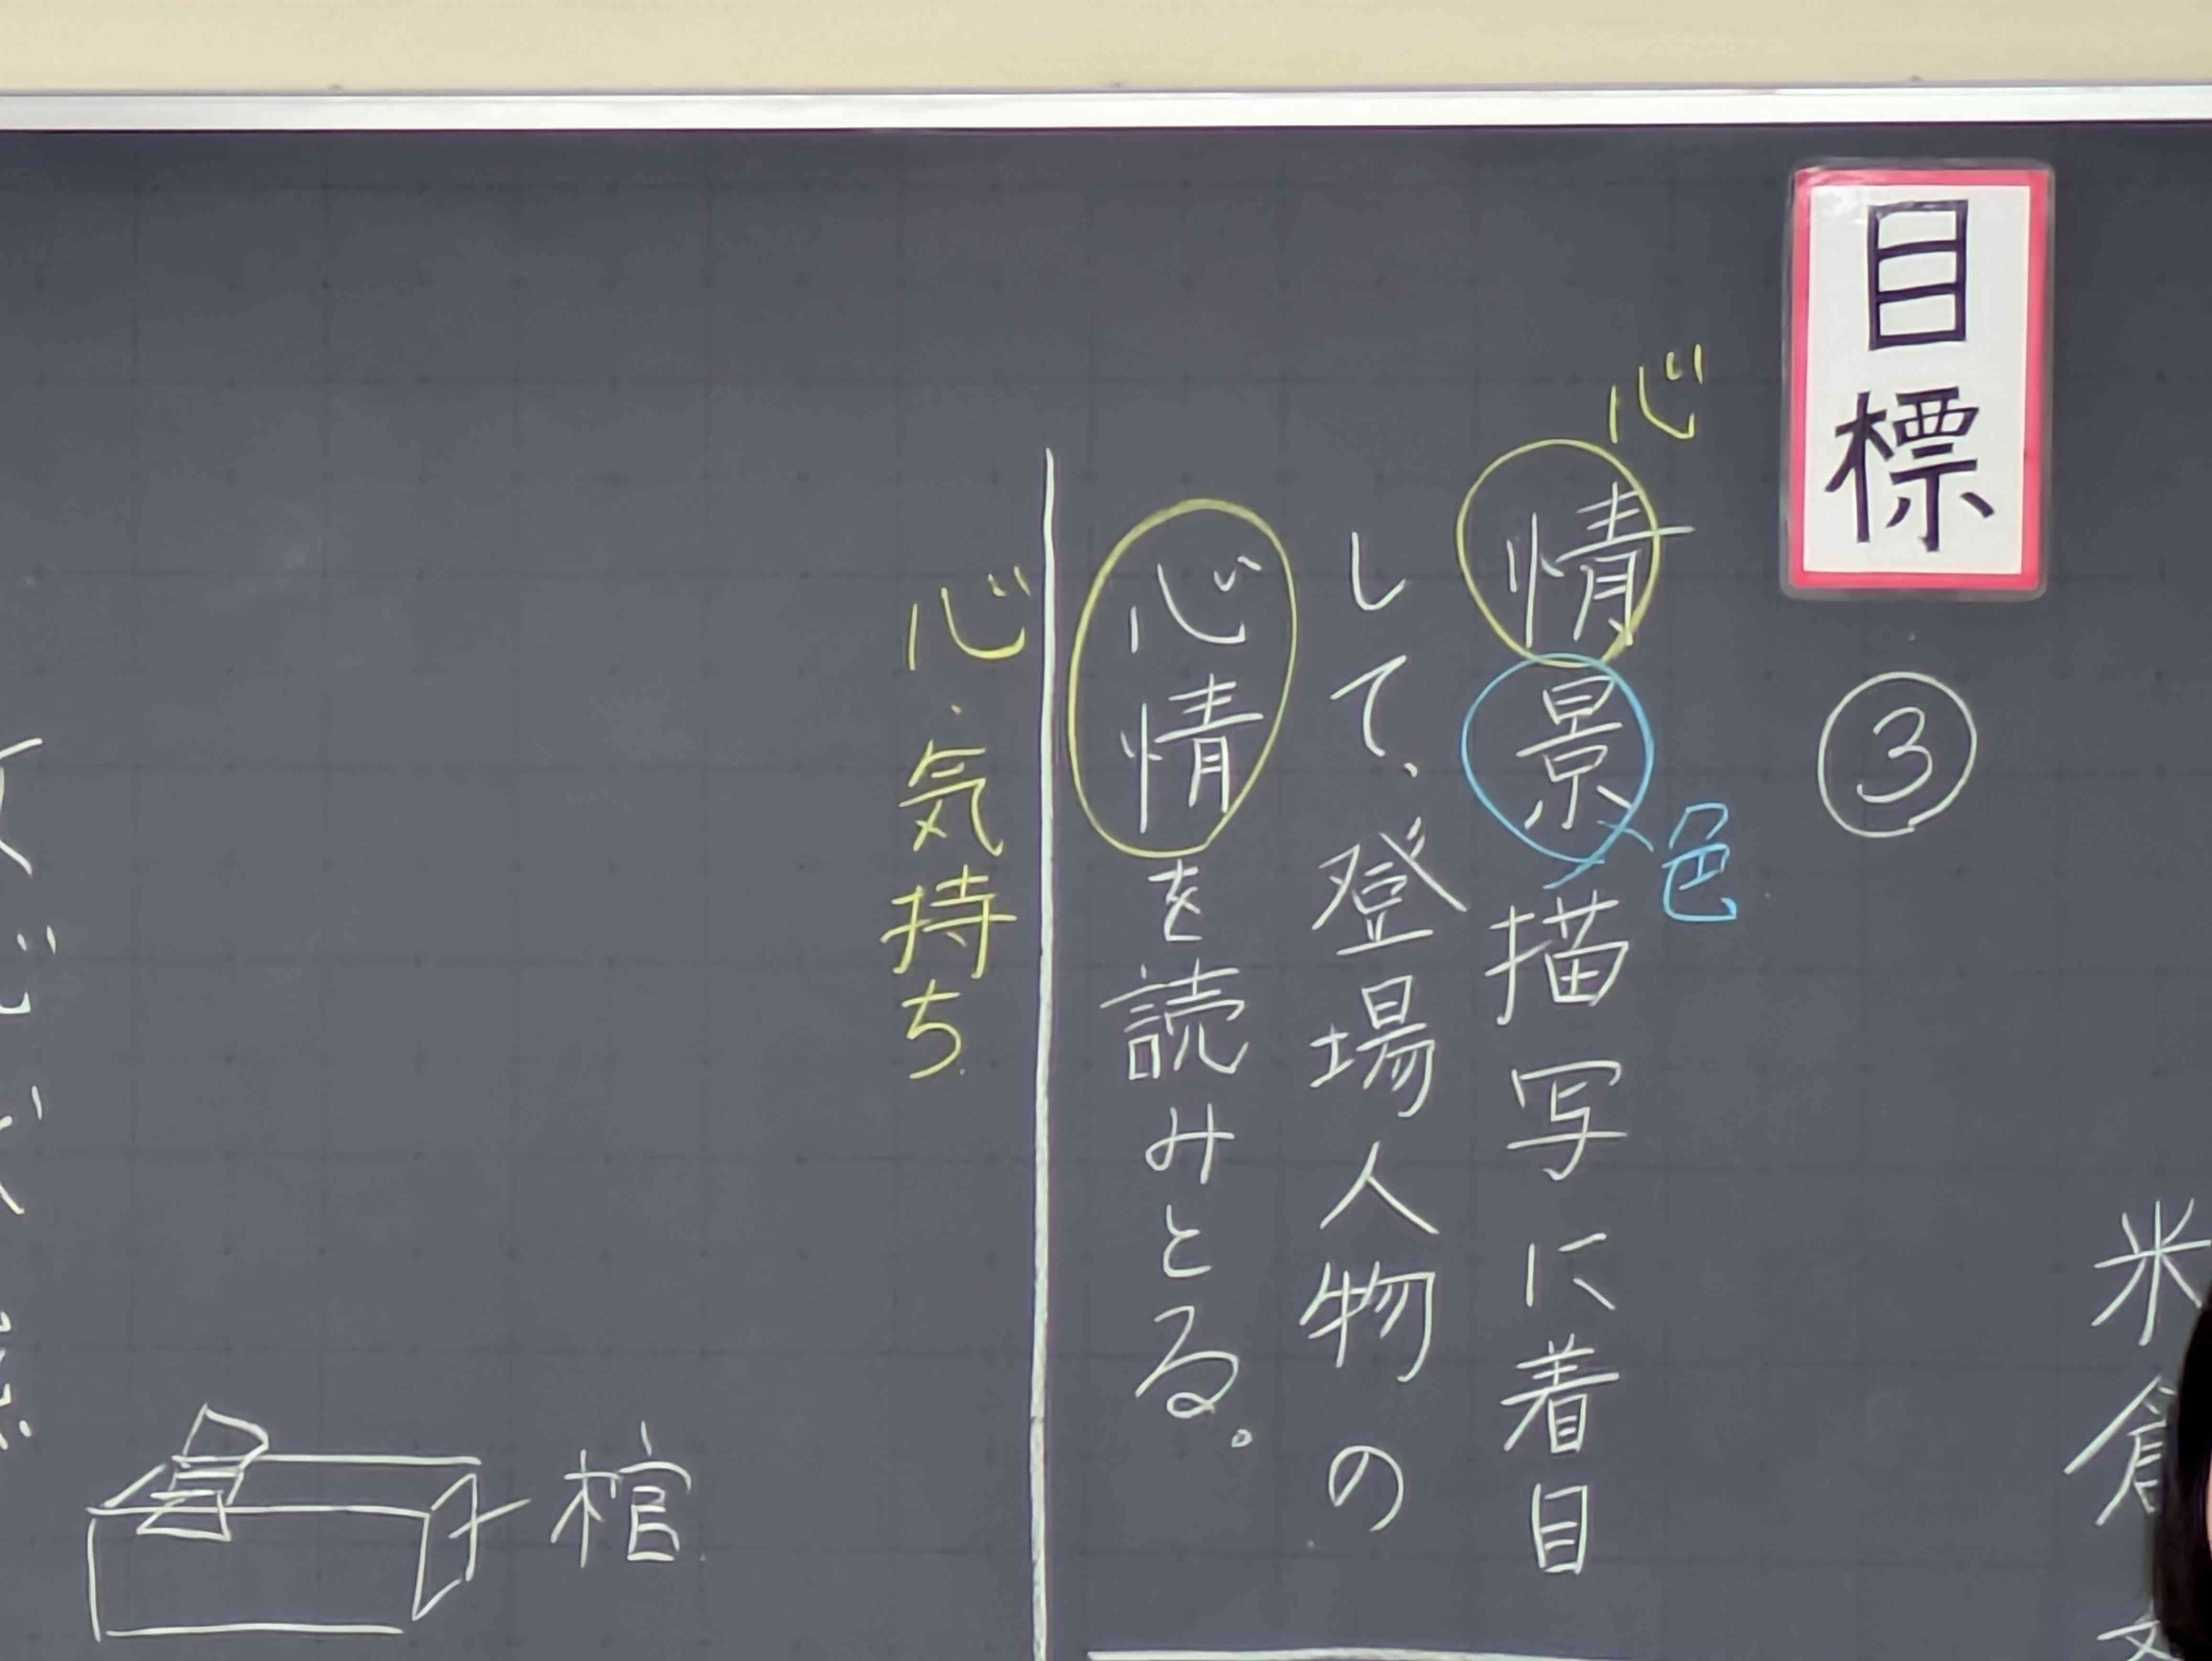 米倉
目標
③
心
情景描写に着目
色
して、登場人物の
心情を読みとる。
心・気持ち
棺